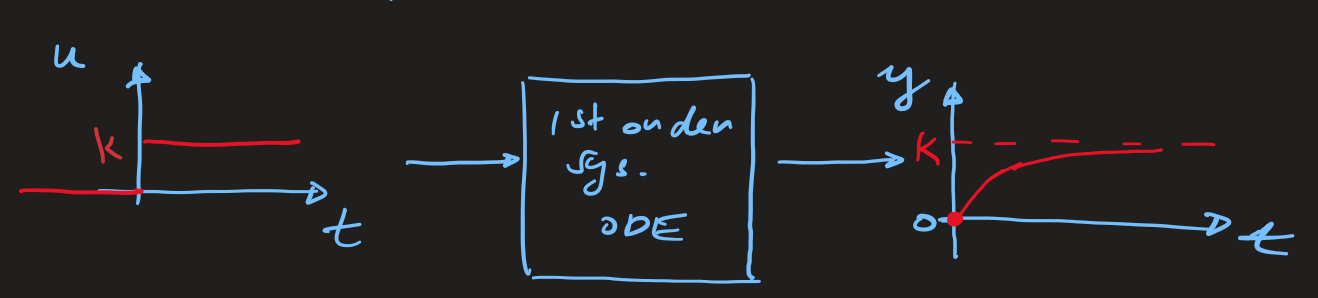 u
K
t
1st order
sys.
ODE
y
K
0
t